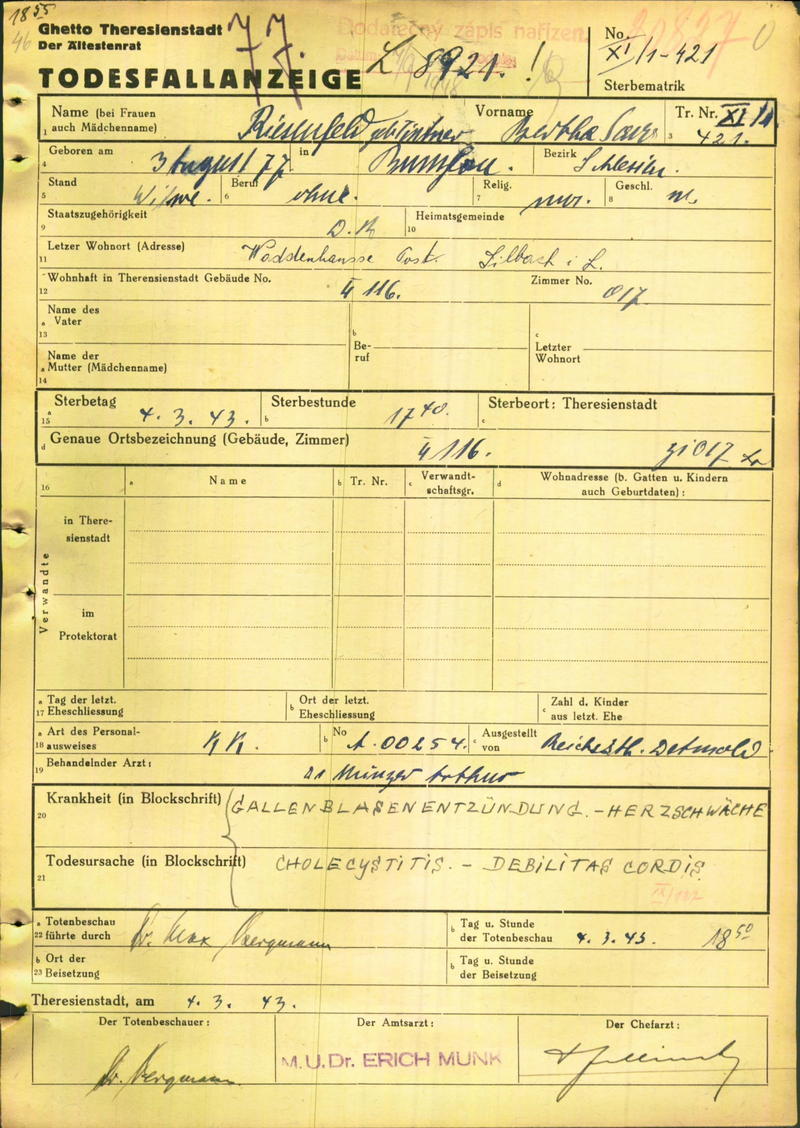 18 55
46
Ghetto Theresienstadt
Der Ältestenrat
77.
Dodatečný zápis nařízen.
L 8921. !
No. XI/1-421
20827
TODESFALLANZEIGE
Sterbematrik
1 Name (bei Frauen auch Mädchenname) Riesenfeld geb. Vorname Bertha Sara 3 Tr. Nr. XI/1 421.
4 Geboren am 3 August 77 in Bunzlau. Bezirk Schlesien.
5 Stand Witwe. 6 Beruf ohne. 7 Relig. mos. 8 Geschl. w.
9 Staatszugehörigkeit D.R 10 Heimatsgemeinde
11 Letzer Wohnort (Adresse) Post. i. L.
12 Wohnhaft in Therensienstadt Gebäude No. II 116. Zimmer No. 017.
13 a Name des Vater b Beruf c Letzter Wohnort
14 a Name der Mutter (Mädchenname)
15 a Sterbetag 4. 3. 43. b Sterbestunde 17 40. c Sterbeort: Theresienstadt
d Genaue Ortsbezeichnung (Gebäude, Zimmer) II 116. zi 017
16 a Name b Tr. Nr. c Verwandtschaftsgr. d Wohnadresse (b. Gatten u. Kindern auch Geburtdaten):
Verwandte
in Theresienstadt
im Protektorat
17 a Tag der letzt. Eheschliessung b Ort der letzt. Eheschliessung c Zahl d. Kinder aus letzt. Ehe
18 a Art des Personalausweises KK. b No A.00254. c Ausgestellt von Reichsstth. Detmold
19 Behandelnder Arzt: Dr Münzer Arthur
20 Krankheit (in Blockschrift) GALLENBLASENENTZÜNDUNG. - HERZSCHWÄCHE
21 Todesursache (in Blockschrift) CHOLECYSTITIS. - DEBILITAS CORDIS
22 a Totenbeschau führte durch Dr. Max Bergmann b Tag u. Stunde der Totenbeschau 4. 3. 43. 18 50
23 a Ort der Beisetzung b Tag u. Stunde der Beisetzung
Theresienstadt, am 4. 3. 43.
Der Totenbeschauer: Der Amtsarzt: Der Chefarzt:
Dr. Bergmann M.U.Dr. ERICH MUNK